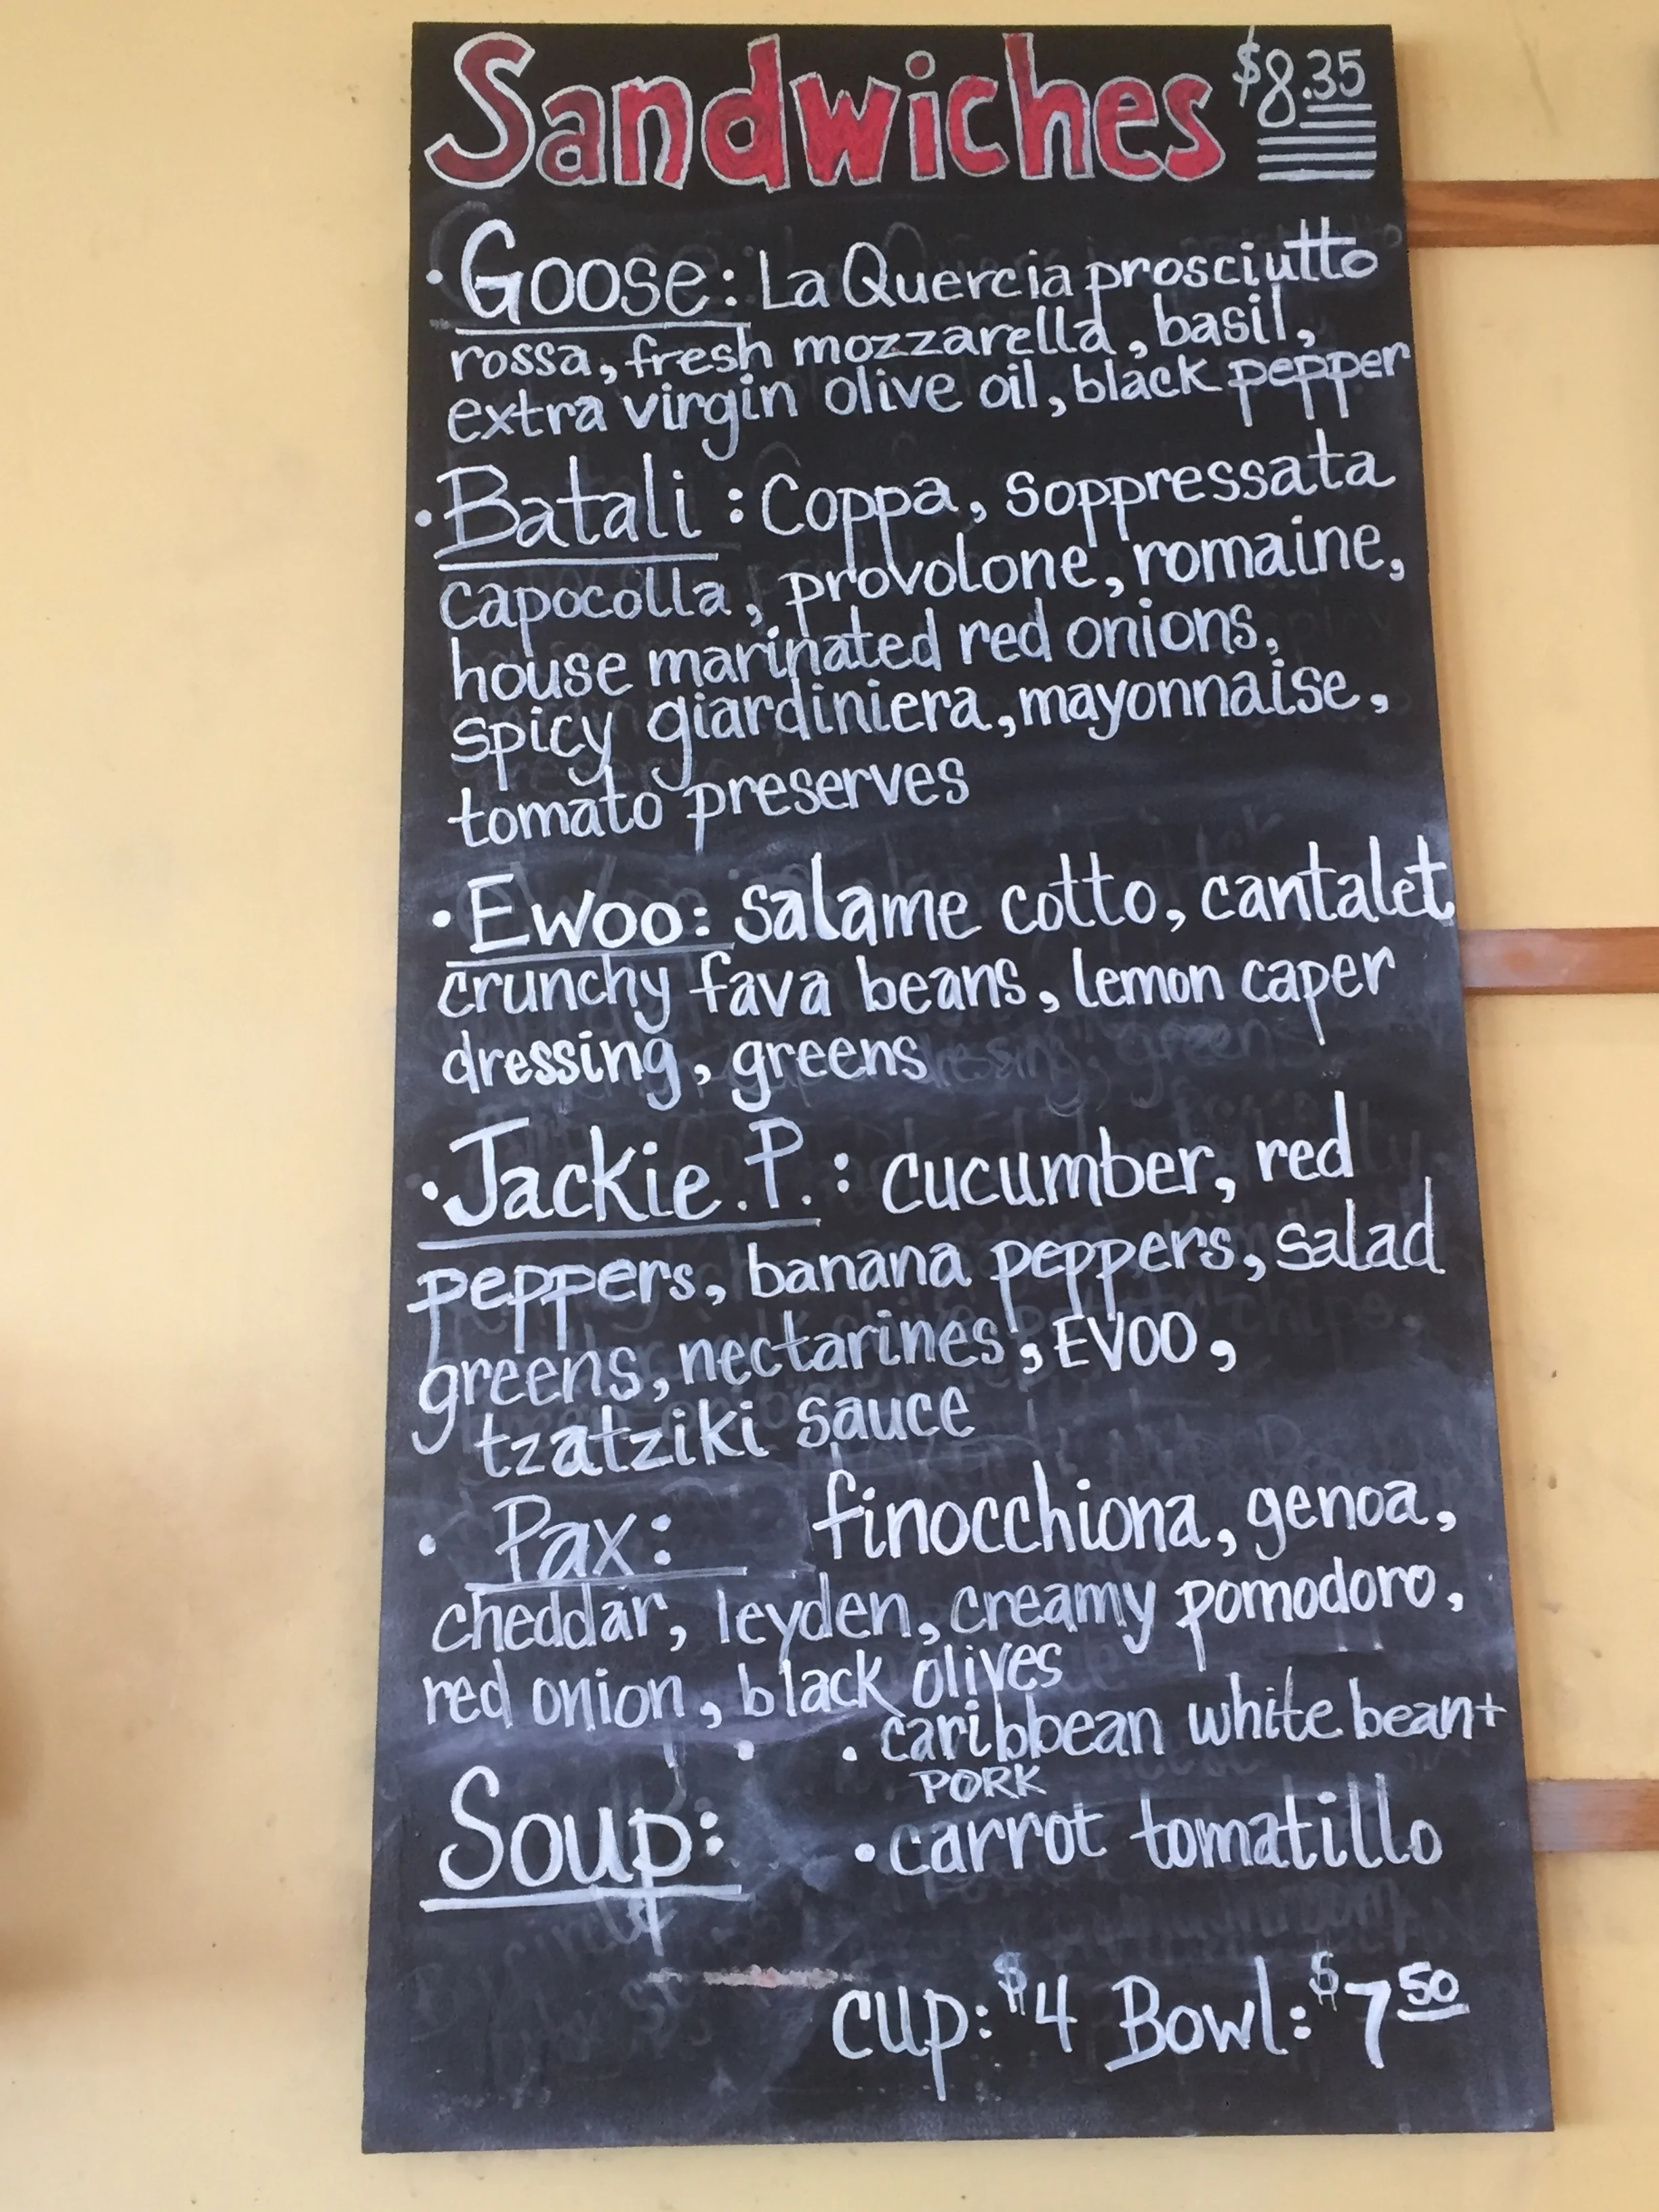 Sandwiches $8.35
· Goose: La Quercia prosciutto
rossa, fresh mozzarella, basil,
extra virgin olive oil, black pepper
· Batali: Coppa, Soppressata
capocolla, provolone, romaine,
house marinated red onions,
spicy giardiniera, mayonnaise,
tomato preserves
· Ewoo: salame cotto, cantalet
crunchy fava beans, lemon caper
dressing, greens
· Jackie.P.: cucumber, red
peppers, banana peppers, salad
greens, nectarines, EVOO,
tzatziki sauce
· Pax: finocchiona, genoa,
cheddar, leyden, creamy pomodoro,
red onion, black olives
· caribbean white bean+
PORK
Soup: · carrot tomatillo
cup: $4 Bowl: $7 50